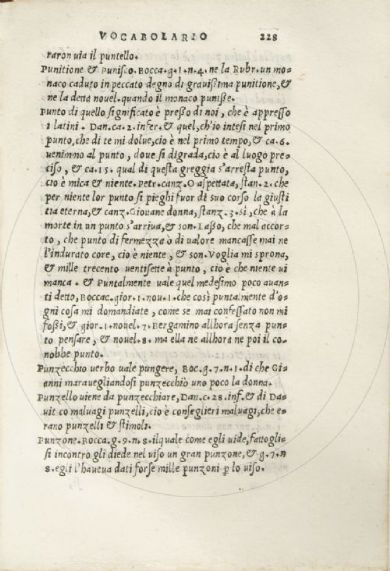 VOCABOLARIO 228
raron uia il puntello.
Punitione & Punisco. Bocca.g.1.n.4. ne la Rubr.un mo-
naco caduto in peccato degno di grauissima punitione, &
ne la detta nouel. quando il monaco punisse.
Punto di quello significato è presso di noi, che è appresso
i latini. Dan.ca.2.infer. & quel, ch'io intesi nel primo
punto, che di te mi dolue, cio è nel primo tempo, & ca.6.
uenimmo al punto, doue si digrada, cio è al luogo pre-
ciso, & ca.15. qual di questa greggia s'arresta punto,
cio è mica & niente. Petr.canz.O aspettata, stan.2. che
per niente lor punto si pieghi fuor di suo corso la giusti
tia eterna, & canz. Giouane donna, stanz.3. si, che à la
morte in un punto s'arriua, & son. Lasso, che mal accor-
to, che punto di fermezza ò di ualore mancasse mai ne
l'indurato core, cio è niente, & son. Voglia mi sprona,
& mille trecento uentisette à punto, cio è che niente ui
manca. & Puntalmente uale quel medesimo poco auan-
ti detto, Boccac.gior.1.nou.1. che così puntalmente d'o-
gni cosa mi domandiate, come se mai confessato non mi
fossi, & gior.1.nouel.7. Bergamino allhora senza pun-
to pensare, & nouel.8. ma ella ne allhora ne poi il co-
nobbe punto.
Punzecchio uerbo uale pungere, Boc.g.7.n.1. di che Gi-
anni marauegliandosi punzecchiò uno poco la donna.
Punzello uiene da punzecchiare, Dan.c.28.inf. & di Da-
uit co maluagi punzelli, cio è conseglieri maluagi, che e-
rano punzelli & stimoli.
Punzone. Bocca.g.9.n.8. ilquale come egli uide, fattogli-
si incontro gli diede nel uiso un gran punzone, & g.7.n
8. egli l'haueua dati forse mille punzoni p lo uiso.